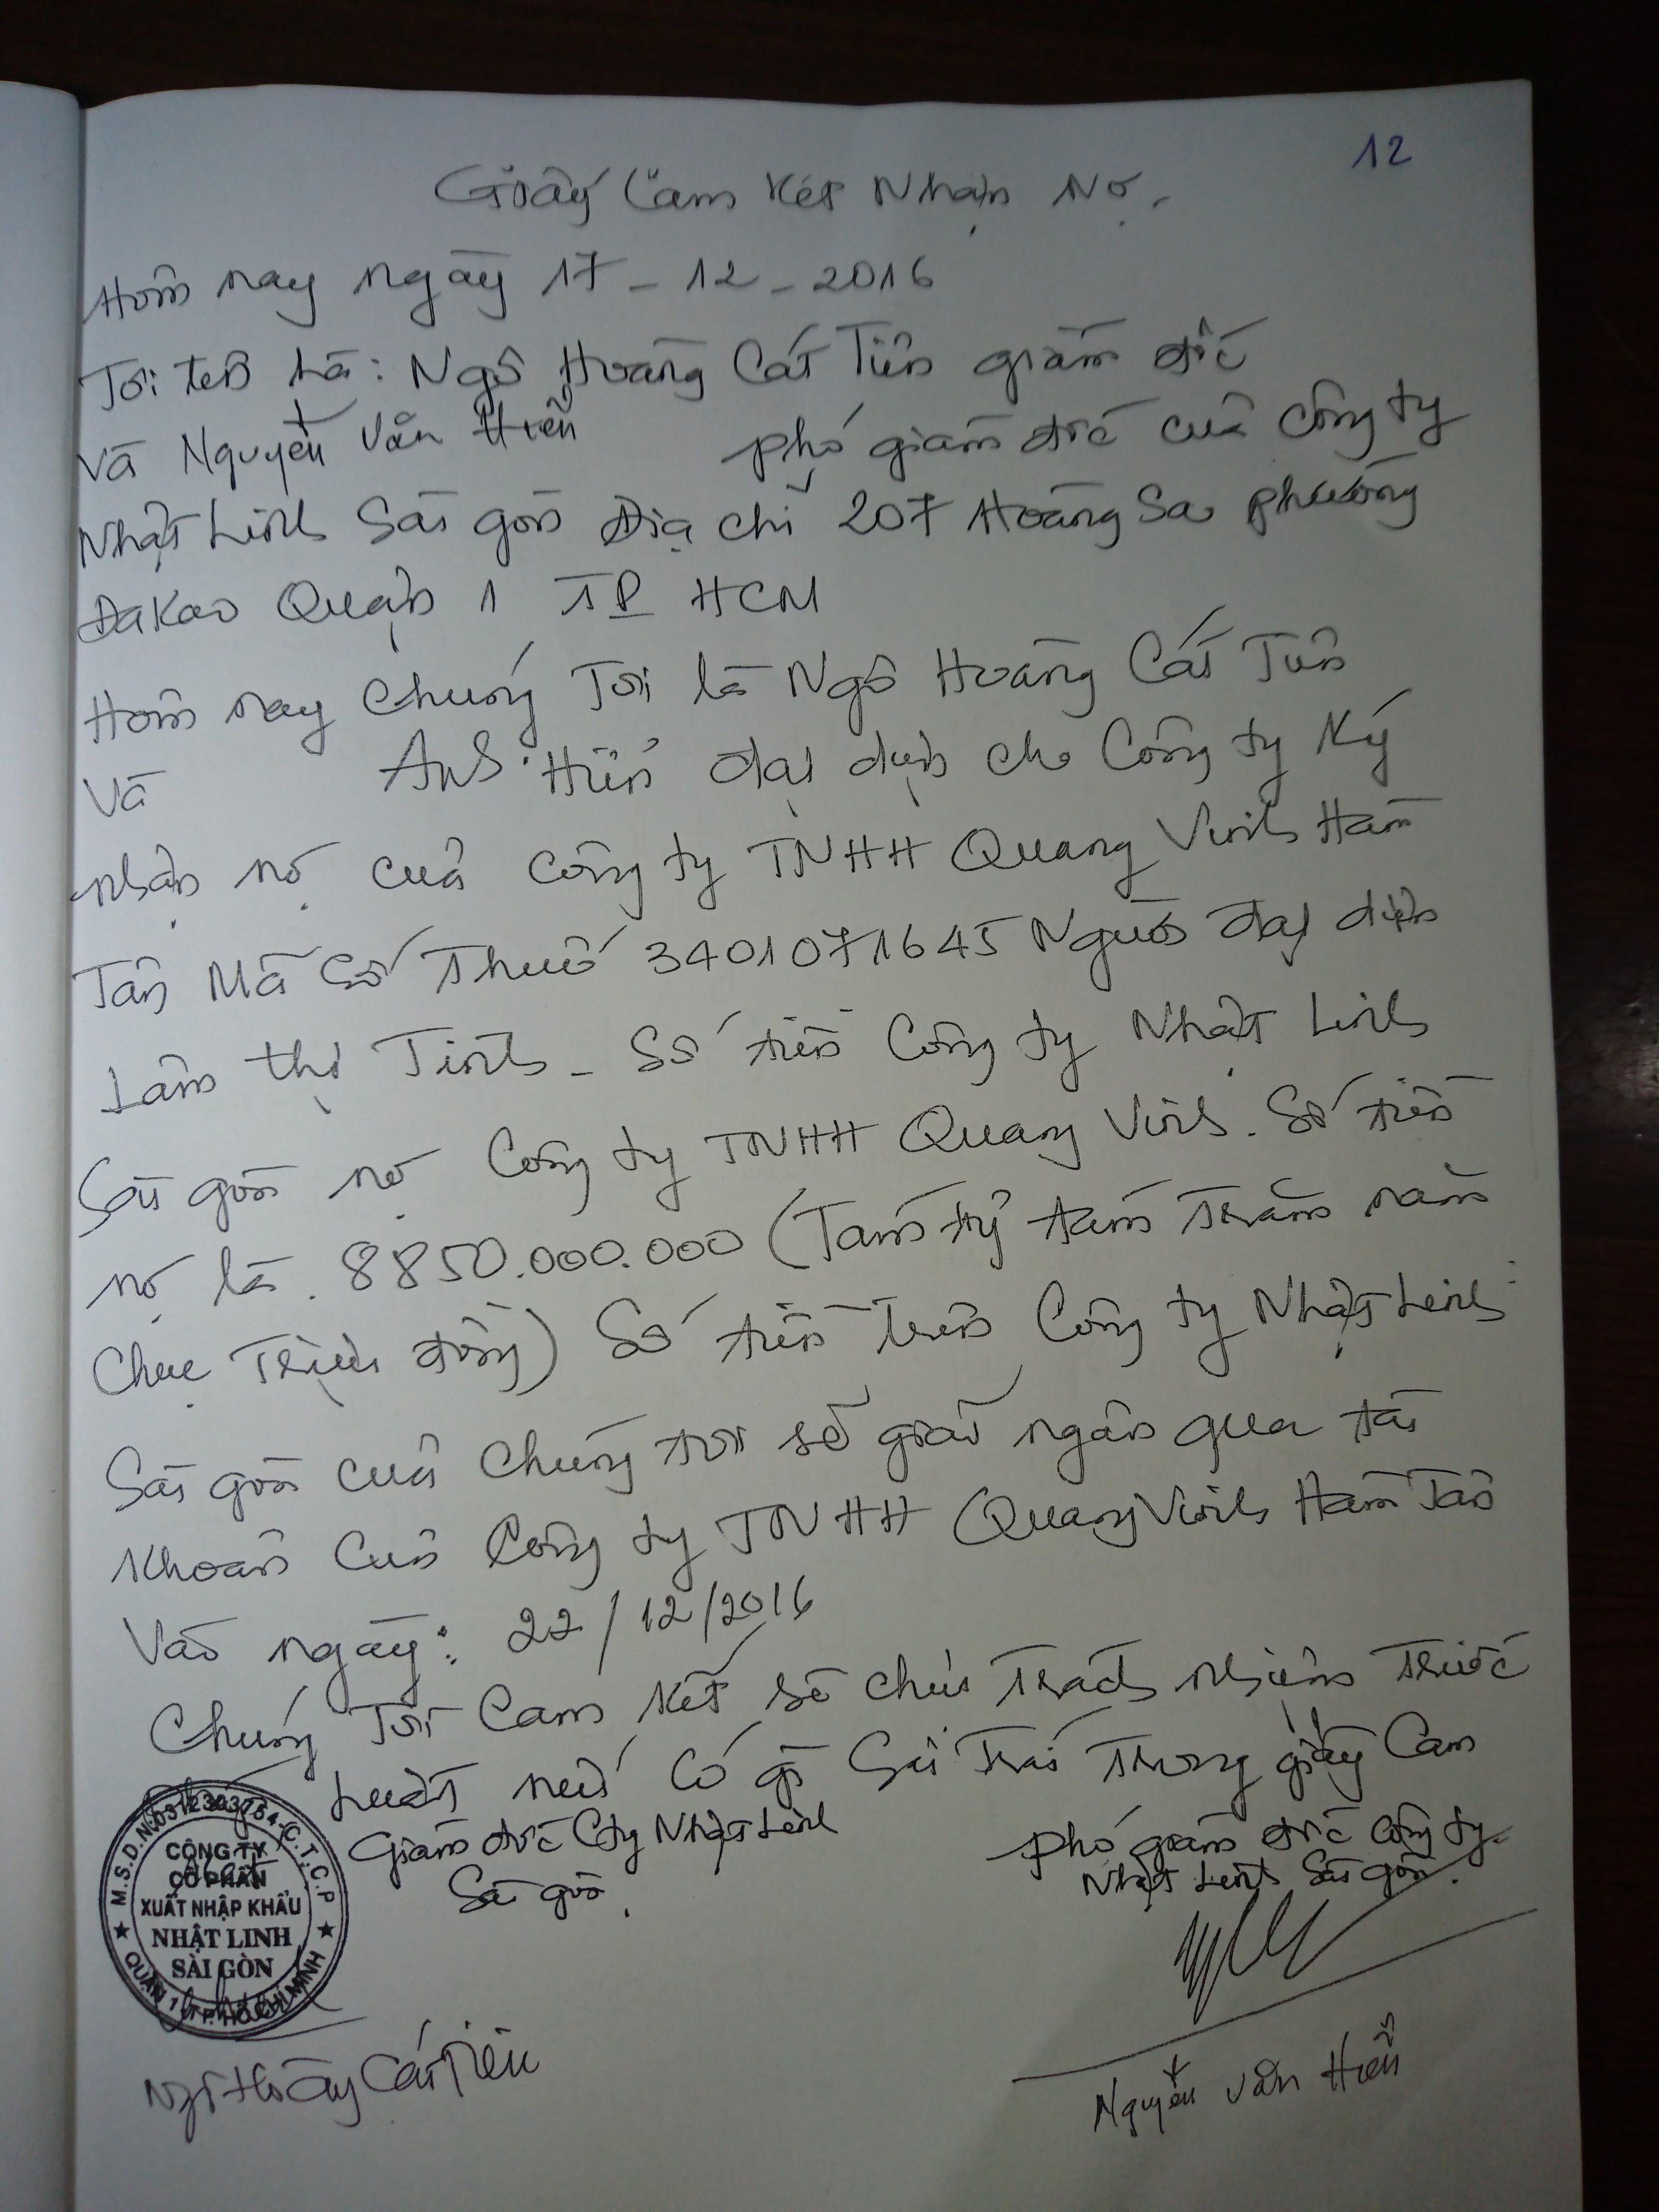 12
Giấy Cam Kết Nhận Nợ.
Hôm nay ngày 17 - 12 - 2016
Tôi tên là: Ngô Hoàng Cát Tiên giám đốc
và Nguyễn Văn Hiển phó giám đốc của công ty
Nhật Linh Sài gòn Địa chỉ 207 Hoàng Sa phường
Đakao Quận 1 TP HCM
Hôm nay chúng Tôi là Ngô Hoàng Cát Tiên
Và Anh Hiển đại diện cho Công ty Ký
nhận nợ của công ty TNHH Quang Vinh Hàm
Tân Mã Số Thuế 3401071645 Người đại diện
Lâm thị Tinh - Số tiền Công ty Nhật Linh
Sài gòn nợ Công ty TNHH Quang Vinh. Số tiền
nợ là. 8850.000.000 (Tám tỷ tám Trăm năm
Chục Triệu đồng) Số tiền trên Công ty Nhật Linh
Sài gòn của chúng tôi sẽ giải ngân qua tài
Khoản Của Công ty TNHH Quang Vinh Hàm Tân
Vào ngày: 22/12/2016
Chúng Tôi Cam Kết sẽ chịu Trách nhiệm Trước
Luật nếu Có gì Sai Trái Trong giấy Cam
Giám đốc Cty Nhật Linh
Sài gòn.
phó giám đốc Công ty
Nhật Linh Sài gòn.
M.S.D.N:0312303764-C.T.C.P
CÔNG TY
CỔ PHẦN
XUẤT NHẬP KHẨU
NHẬT LINH
SÀI GÒN
QUẬN 1 - T.P HỒ CHÍ MINH
Ngô Hoàng Cát Tiên
Nguyễn Văn Hiển